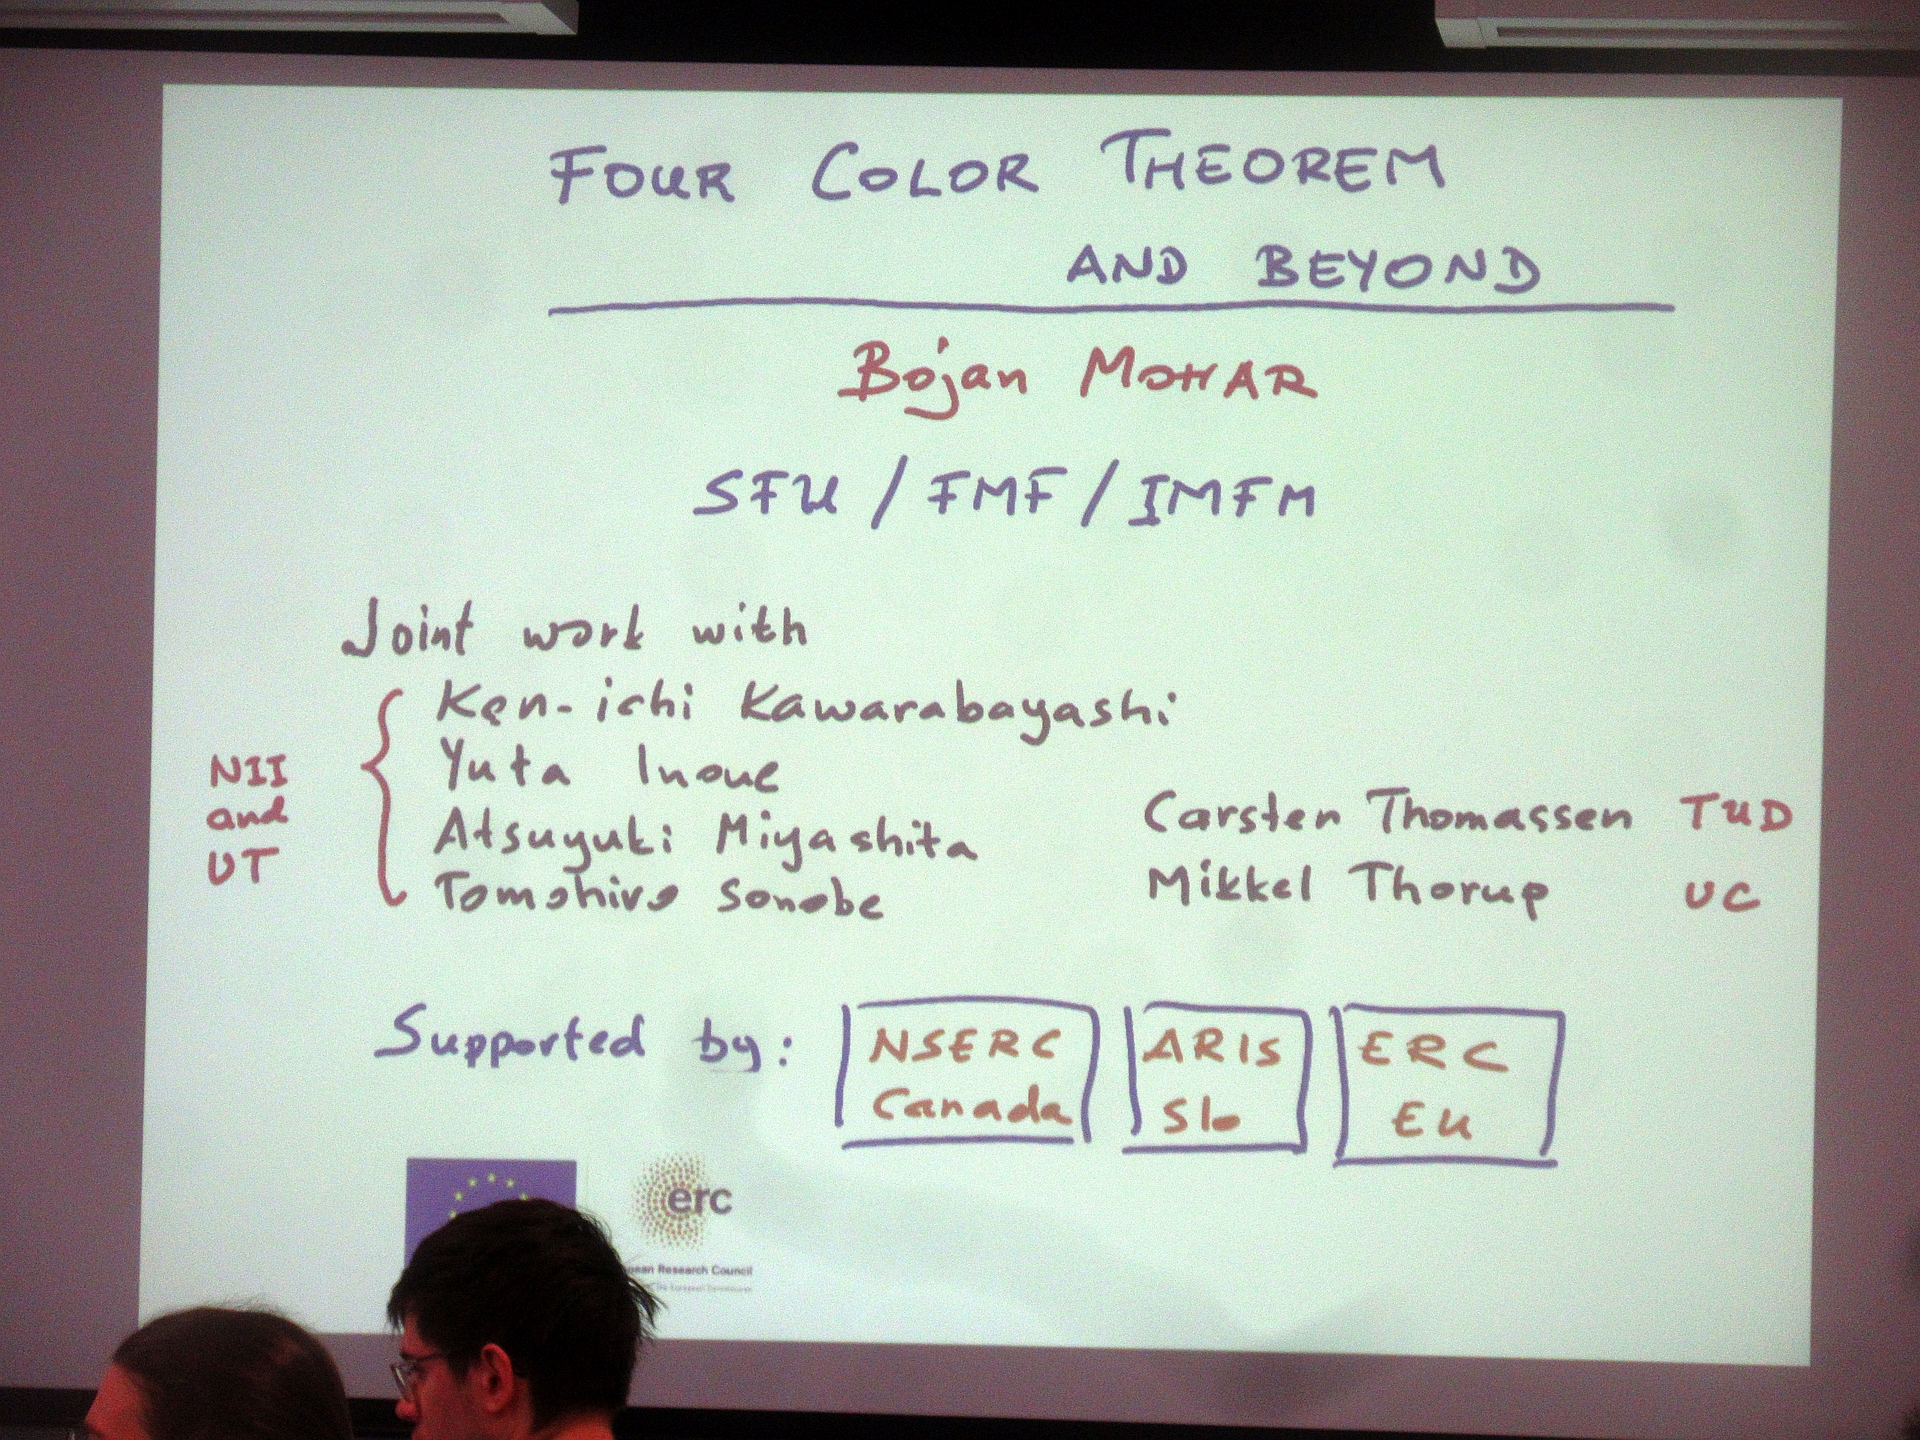 FOUR COLOR THEOREM
AND BEYOND
Bojan MOHAR
SFU / FMF / IMFM
Joint work with
Ken-ichi Kawarabayashi
Yuta Inoue
Atsuyuki Miyashita
Tomohiro Sonobe
NII
and
UT
Carsten Thomassen TUD
Mikkel Thorup UC
Supported by:
NSERC
Canada
ARIS
Slo
ERC
EU
erc
Research Council